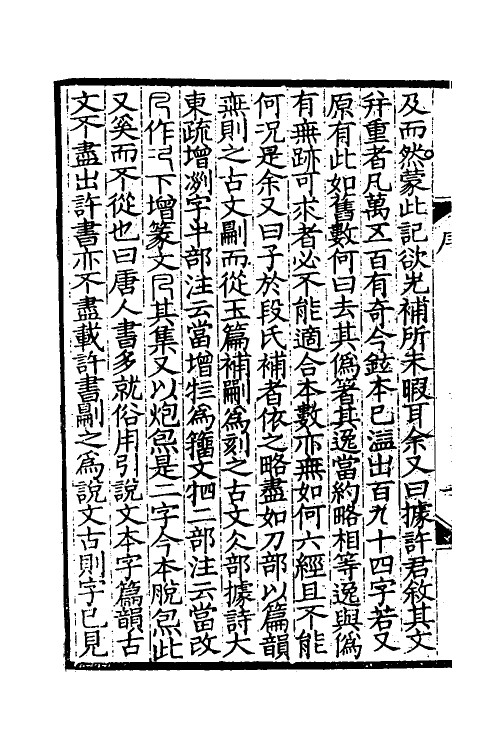 及而然蒙此記欲先補所未暇耳余又曰據許君敘其文
并重者凡萬五百有奇今鉉本已溢出百九十四字若又
原有此如舊數何曰去其偽箸其逸當約略相等逸與偽
有無跡可求者必不能適合本數亦無如何六經且不能
何況是余又曰子於段氏補者依之略盡如刀部以篇韻
無則之古文𠟭而從玉篇補𠟭為刻之古文仌部據詩大
東疏增字半部注云當增牭為籀文牭二部注云當改
㔾作下增篆文㔾其集又以炮炰是二字今本脫炰此
又奚而不從也曰唐人書多就俗用引說文本字篇韻古
文不盡出許書亦不盡載許書𠟭之為說文古則字已見
序